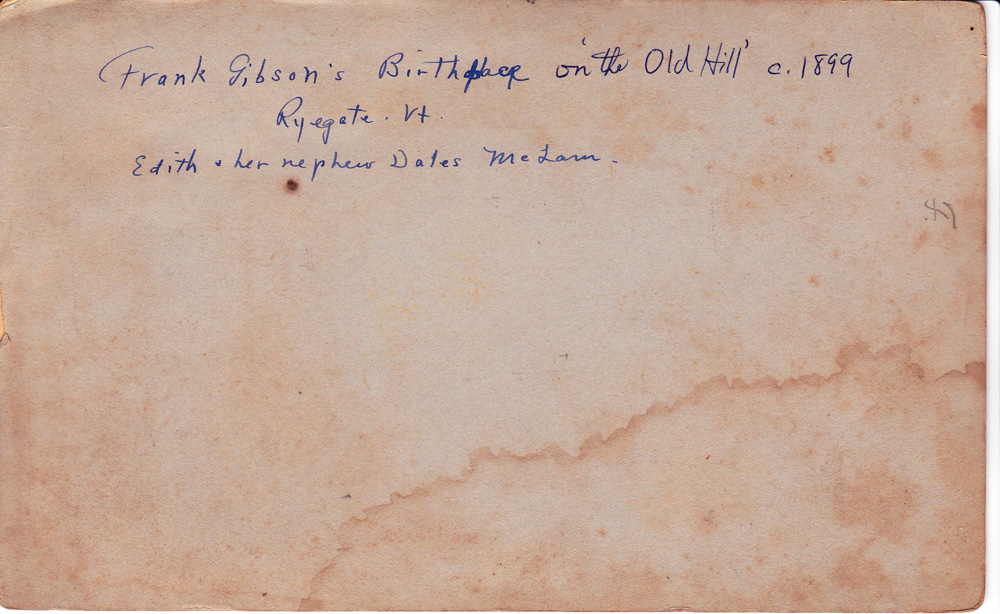 Frank Gibson's Birthplace on 'the Old Hill' c. 1899
Ryegate. Vt.
Edith & her nephew Dates McLam.